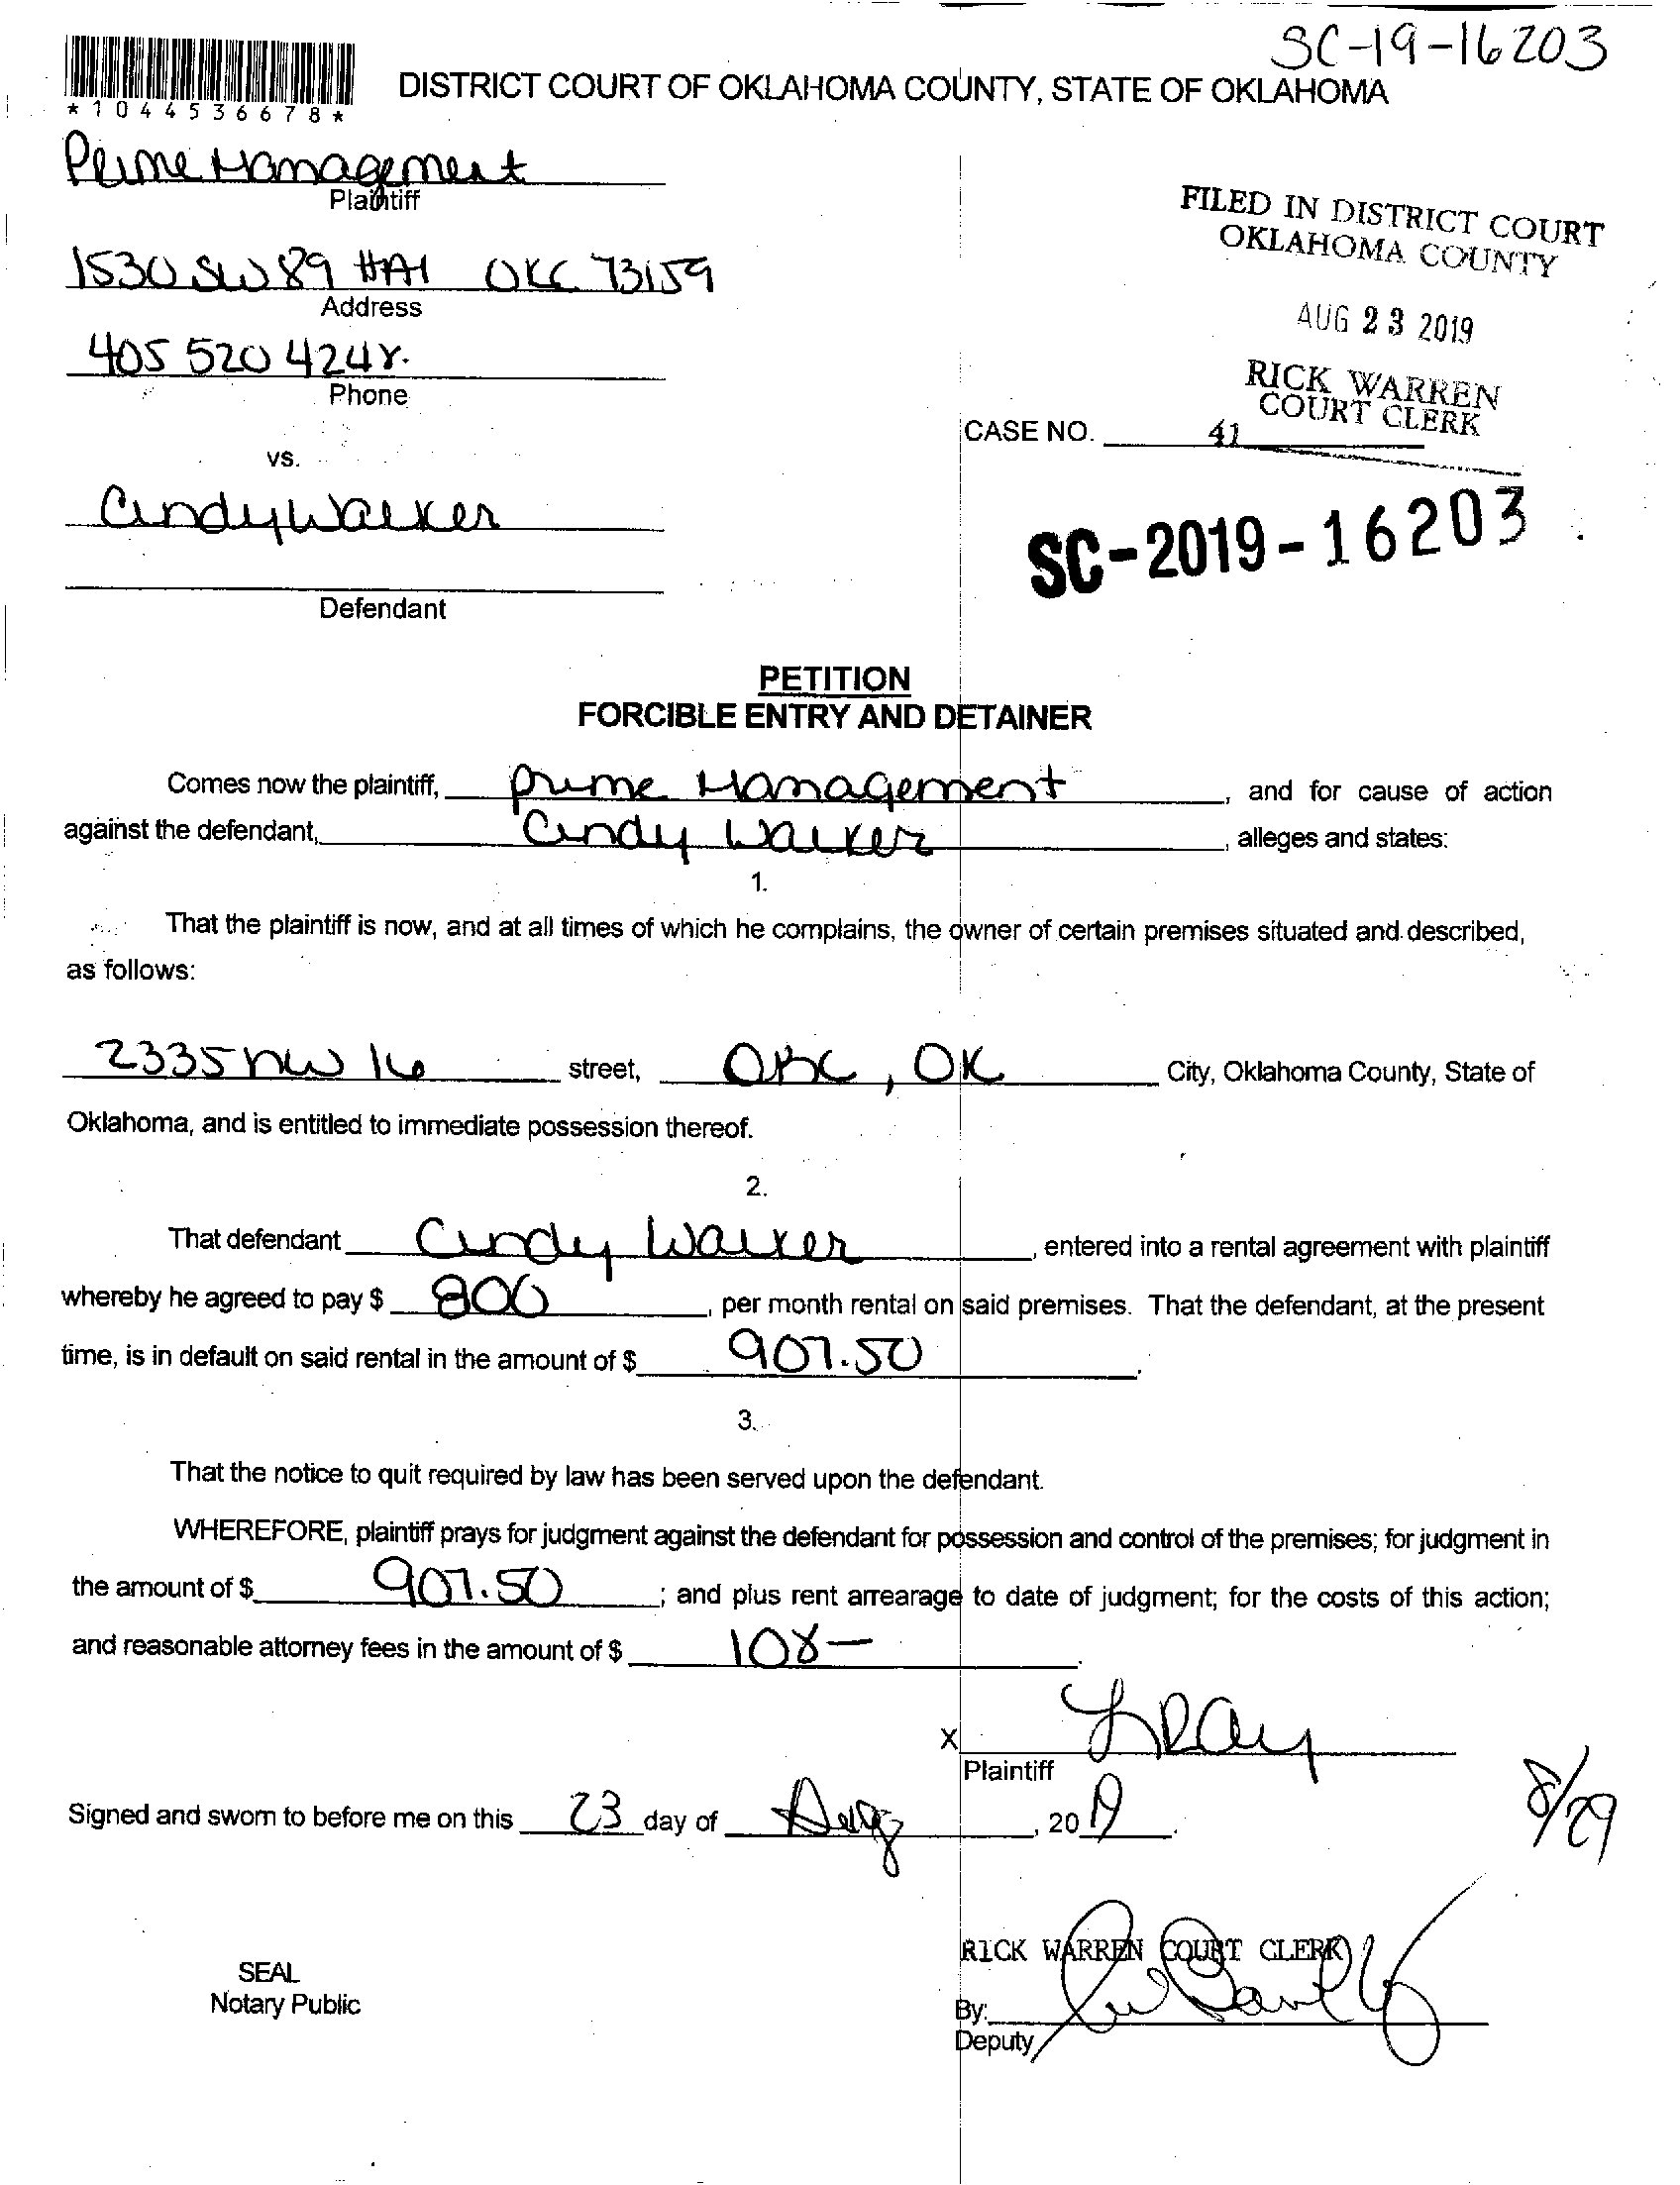 SC-19-16203
*1044536678*
DISTRICT COURT OF OKLAHOMA COUNTY, STATE OF OKLAHOMA
Prime Management
Plaintiff
FILED IN DISTRICT COURT
OKLAHOMA COUNTY
1530 SW 89 #A1 OKC 73159
Address
AUG 23 2019
405 520 4248.
Phone
RICK WARREN
COURT CLERK
CASE NO. 41
vs.
Cindy Walker
SC-2019-16203
Defendant
PETITION
FORCIBLE ENTRY AND DETAINER
Comes now the plaintiff, Prime Management, and for cause of action
against the defendant, Cindy Walker, alleges and states:
1.
That the plaintiff is now, and at all times of which he complains, the owner of certain premises situated and described,
as follows:
2335 NW 16 street, OKC, OK City, Oklahoma County, State of
Oklahoma, and is entitled to immediate possession thereof.
2.
That defendant Cindy Walker, entered into a rental agreement with plaintiff
whereby he agreed to pay $ 800, per month rental on said premises. That the defendant, at the present
time, is in default on said rental in the amount of $ 907.50.
3.
That the notice to quit required by law has been served upon the defendant.
WHEREFORE, plaintiff prays for judgment against the defendant for possession and control of the premises; for judgment in
the amount of $ 907.50; and plus rent arrearage to date of judgment; for the costs of this action;
and reasonable attorney fees in the amount of $ 108-.
X
Plaintiff
Signed and sworn to before me on this 23 day of Aug, 2019.
8/29
RICK WARREN COURT CLERK
SEAL
Notary Public
By:
Deputy